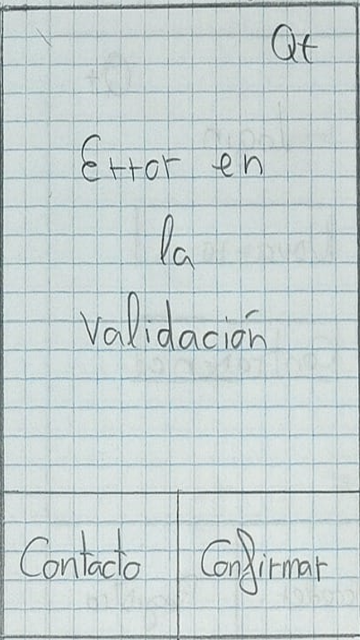 Qt
Error en
la
Validación
Contacto
Confirmar